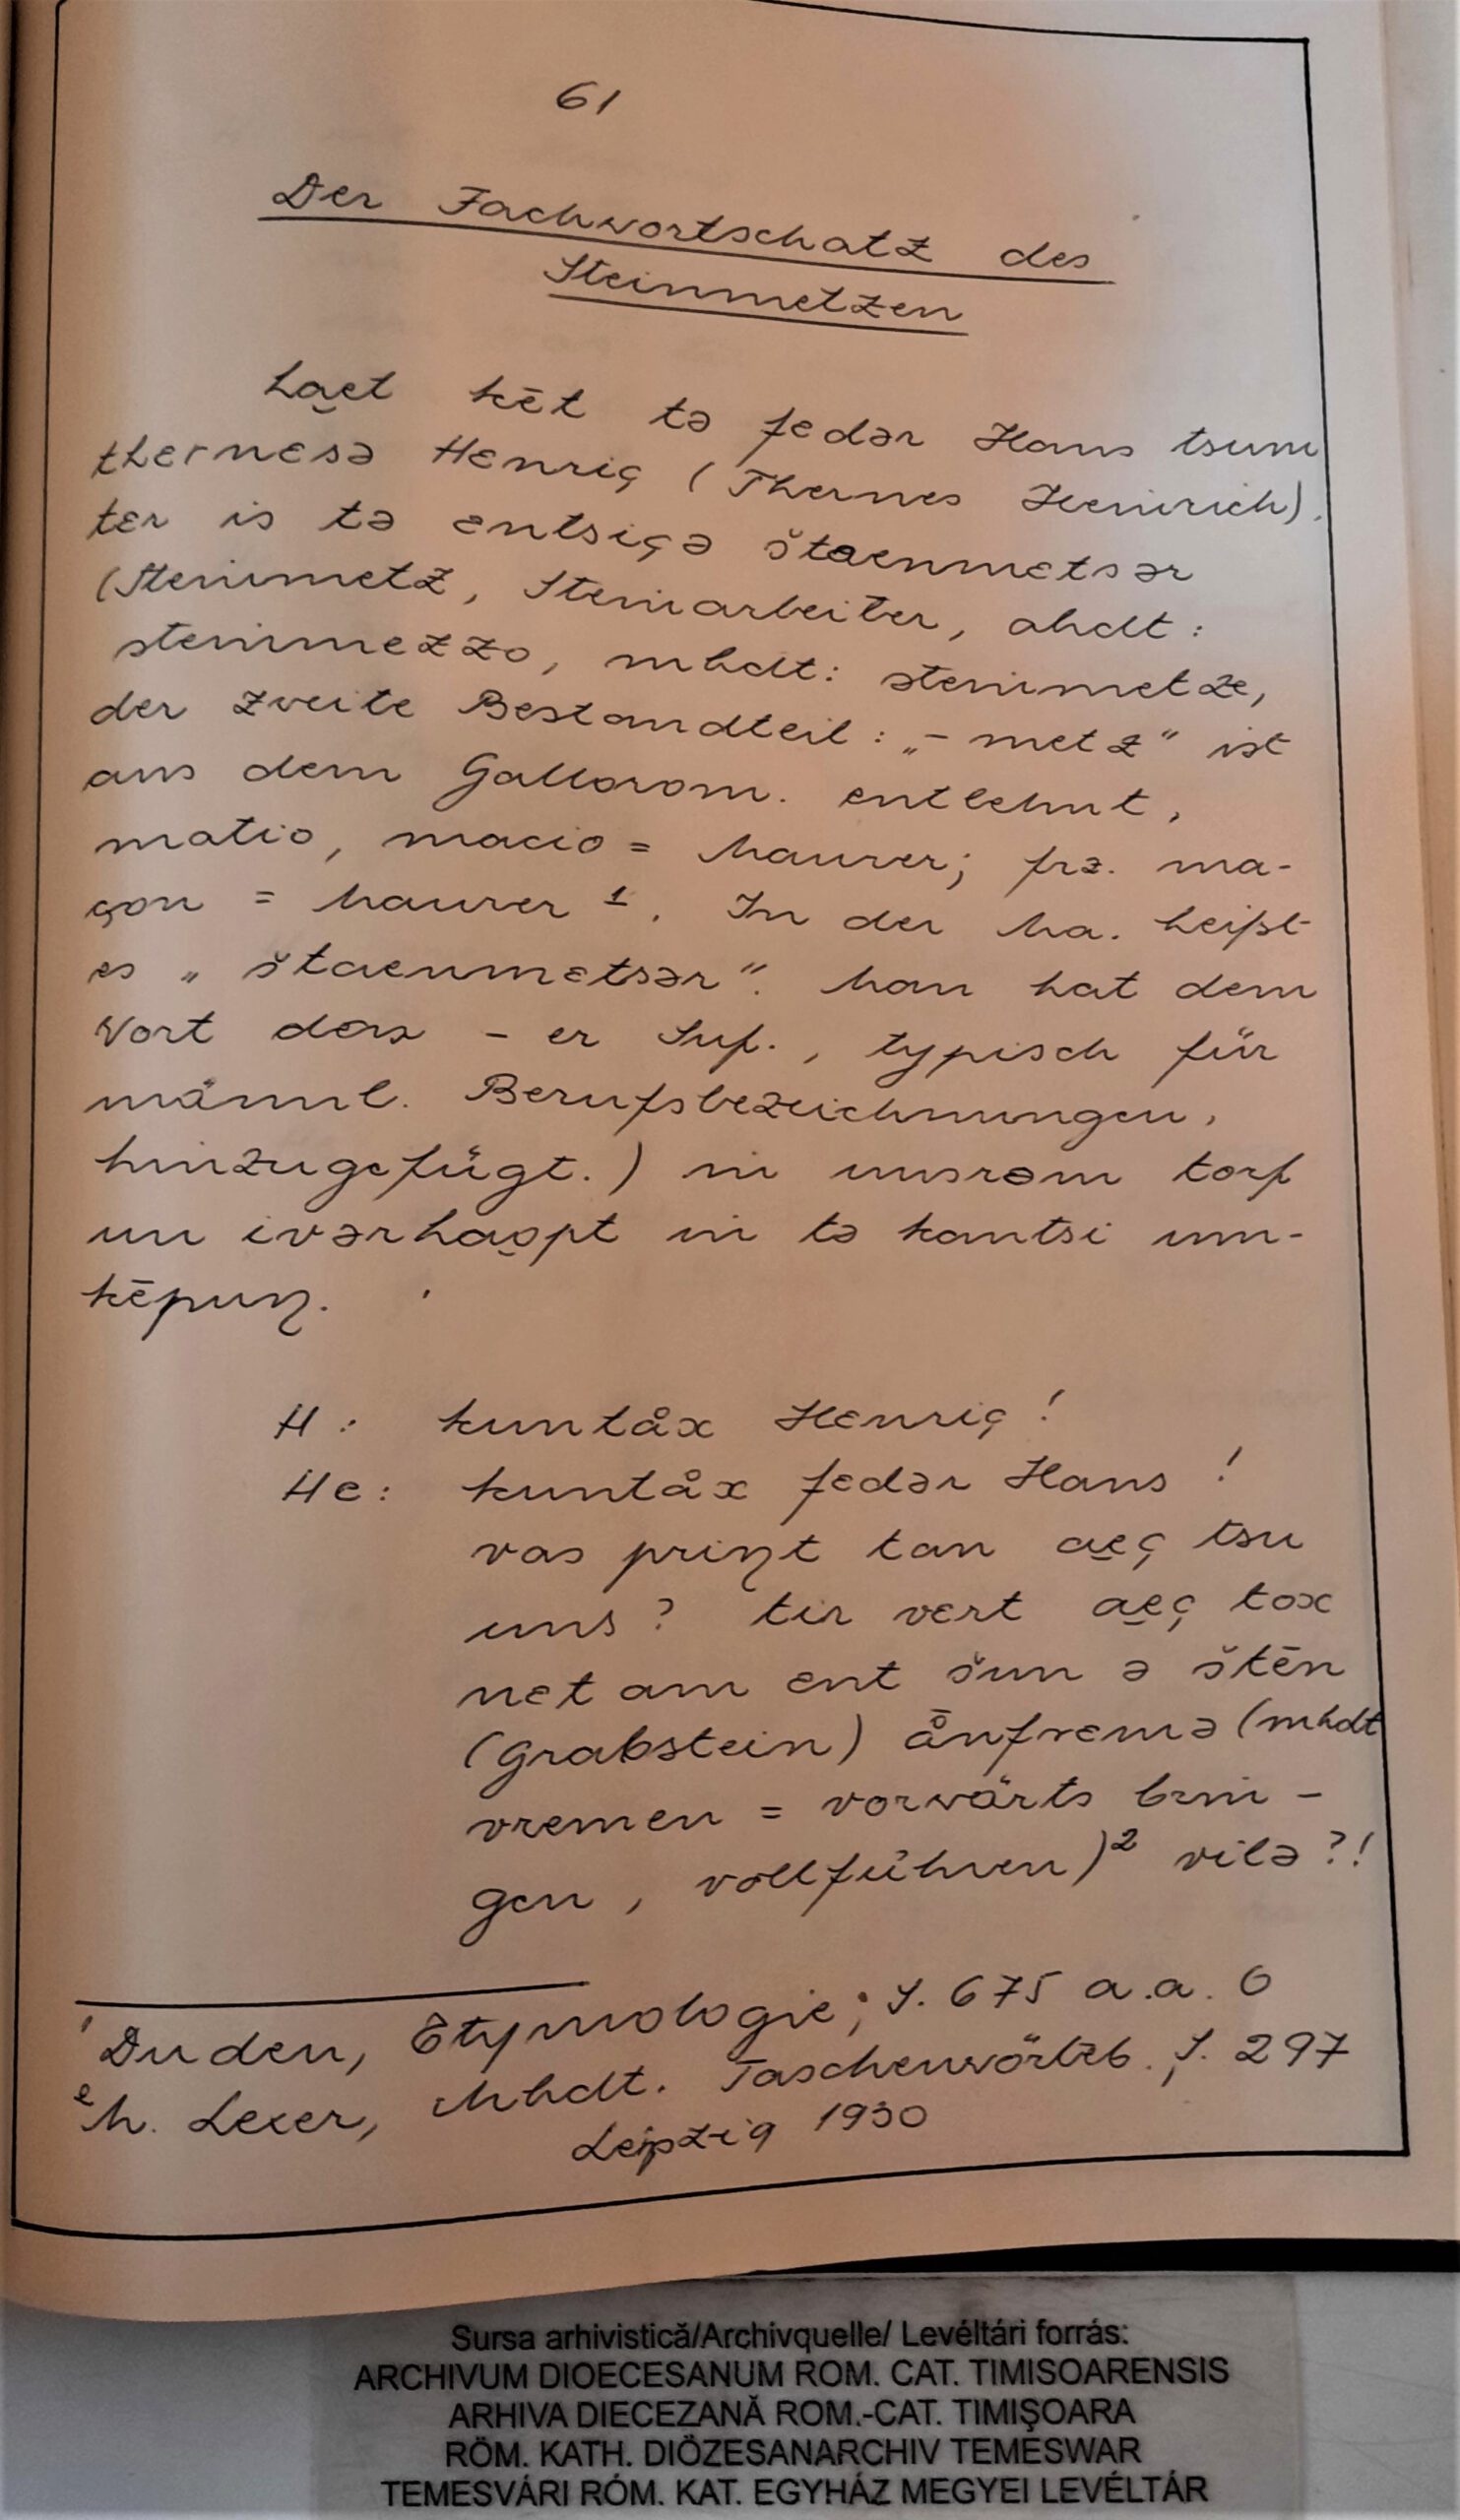 61
Der Fachwortschatz des
Steinmetzen
Ha̯et kēt tə fedər Hans tsum
thernesə Henriç (Thernes Heinrich).
tɛr is tə entsiçə štaenmɛtsər
(Steinmetz, Steinarbeiter, ahdt:
steinmezzo, mhdt: steinmetze,
der zweite Bestandteil: „-metz" ist
aus dem Gallorom. entlehnt,
matio, macio = Maurer; frz. ma-
çon = Maurer 1. In der Ma. heißt
es „štaenmɛtsər". Man hat dem
Wort das -er Suf., typisch für
männl. Berufsbezeichnungen,
hinzugefügt.) in unsrəm torf
un ivərhao̯pt in tə kantsi um-
kēpuŋ.
H: kuntåx Henriç!
He: kuntåx fedər Hans!
vas priŋt tan ae̯ç tsu
uns? tir vert ae̯ç tox
nɛt am ent šun ə štēn
(Grabstein) å̄nfremə (mhdt
vremen = vorwärts brin-
gen, vollführen)2 vilə?!
1 Duden, Etymologie; S. 675 a.a.O
2 M. Lexer, Mhdt. Taschenwörtrb. S. 297
Leipzig 1930
Sursa arhivistică/Archivquelle/ Levéltári forrás:
ARCHIVUM DIOECESANUM ROM. CAT. TIMISOARENSIS
ARHIVA DIECEZANĂ ROM.-CAT. TIMIŞOARA
RÖM. KATH. DIÖZESANARCHIV TEMESWAR
TEMESVÁRI RÓM. KAT. EGYHÁZ MEGYEI LEVÉLTÁR